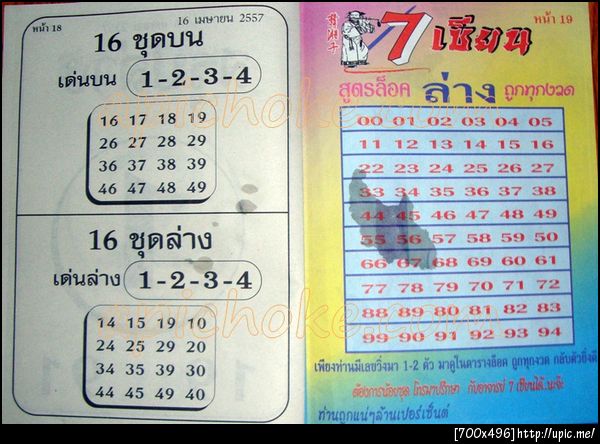 หน้า 18
16 เมษายน 2557
16 ชุดบน
เด่นบน 1-2-3-4
16 17 18 19
26 27 28 29
36 37 38 39
46 47 48 49
16 ชุดล่าง
เด่นล่าง 1-2-3-4
14 15 19 10
24 25 29 20
34 35 39 30
44 45 49 40
หน้า 19
7 เซียน
สูตรล็อค ล่าง ถูกทุกงวด
00 01 02 03 04 05
11 12 13 14 15 16
22 23 24 25 26 27
33 34 35 36 37 38
44 45 46 47 48 49
55 56 57 58 59 50
66 67 68 69 60 61
77 78 79 70 71 72
88 89 80 81 82 83
99 90 91 92 93 94
เพียงท่านมีเลขวิ่งมา 1-2 ตัว มาดูในตารางล็อค ถูกทุกงวด กลับตัววิ่งดี
ต้องการน้อยชุด โทรมาปรึกษา กับอาจารย์ 7 เซียนได้นะจ๊ะ
ท่านถูกแน่ๆล้านเปอร์เซ็นต์
epichoke.com
epichoke.com
[700x496]http://upic.me/